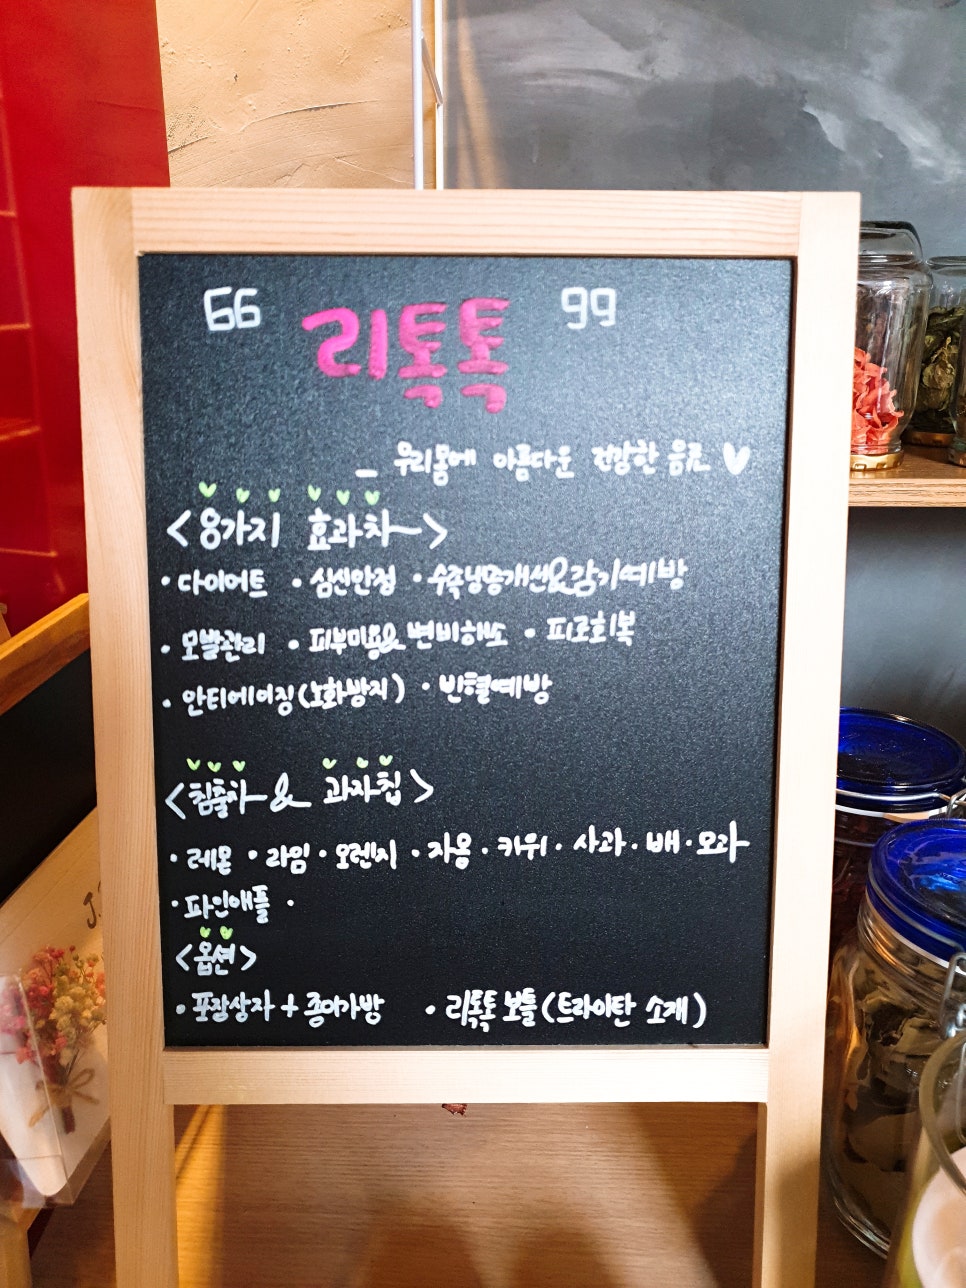 66 리톡톡 99
_ 우리몸에 아름다운 건강한 음료
<8가지 효과차>
· 다이어트 · 심신안정 · 수족냉증개선&감기예방
· 모발관리 · 피부미용& 변비해소 · 피로회복
· 안티에이징(노화방지) · 빈혈예방
<침출차 & 과자칩>
· 레몬 · 라임 · 오렌지 · 자몽 · 키위 · 사과 · 배 · 모과
· 파인애플 ·
<옵션>
· 포장상자 + 종이가방 · 리톡톡 보틀(트라이탄 소재)